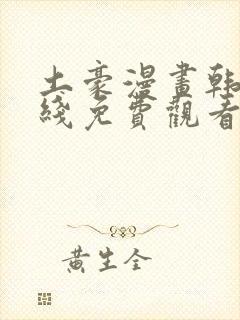 土豪漫畫韩
綫免費觀看
黄生全